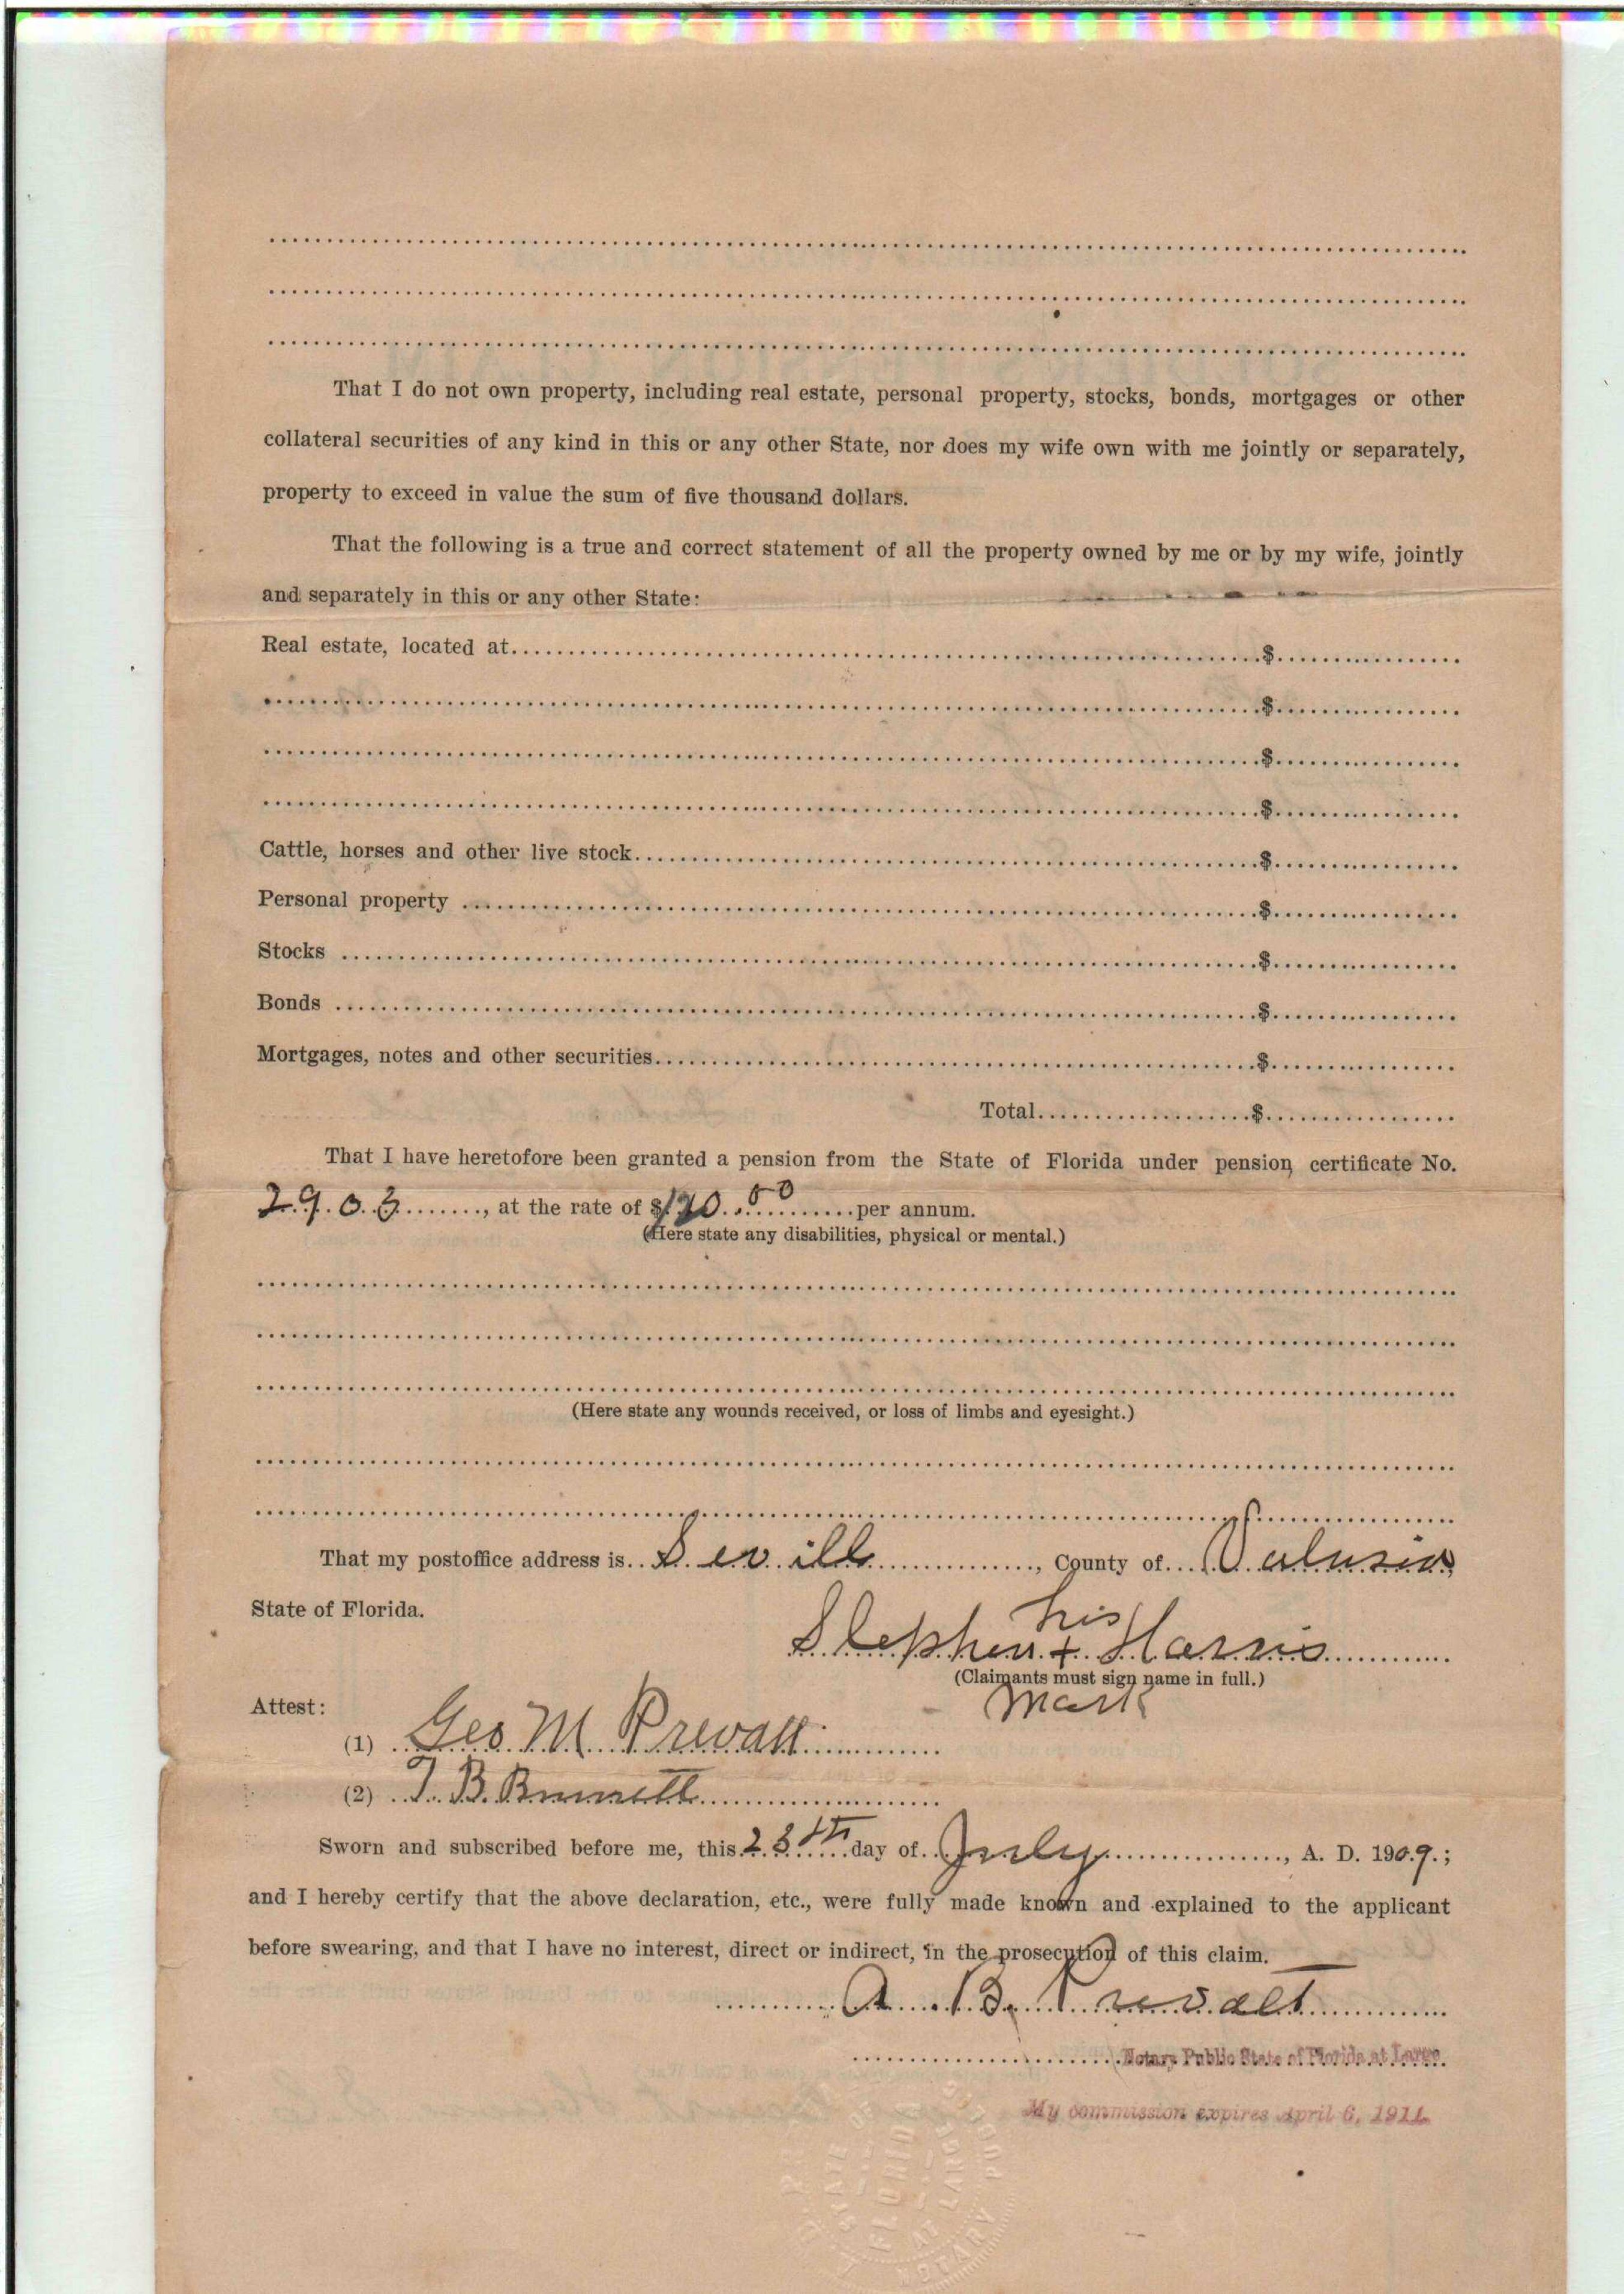 That I do not own property, including real estate, personal property, stocks, bonds, mortgages or other
collateral securities of any kind in this or any other State, nor does my wife own with me jointly or separately,
property to exceed in value the sum of five thousand dollars.
That the following is a true and correct statement of all the property owned by me or by my wife, jointly
and separately in this or any other State:
Real estate, located at $
$
$
$
Cattle, horses and other live stock $
Personal property $
Stocks $
Bonds $
Mortgages, notes and other securities $
Total $
That I have heretofore been granted a pension from the State of Florida under pension certificate No.
2903, at the rate of $120.00 per annum.
(Here state any disabilities, physical or mental.)
(Here state any wounds received, or loss of limbs and eyesight.)
That my postoffice address is Seville, County of Volusia
State of Florida.
his
Stephen + Harris
(Claimants must sign name in full.)
mark
Attest:
(1) Geo M Prevatt
(2) J. B. Bennett
Sworn and subscribed before me, this day of July, A. D. 1909;
and I hereby certify that the above declaration, etc., were fully made known and explained to the applicant
before swearing, and that I have no interest, direct or indirect, in the prosecution of this claim.
A. B. Prevatt
Notary Public State of Florida at Large.
My commission expires April 6, 1911.